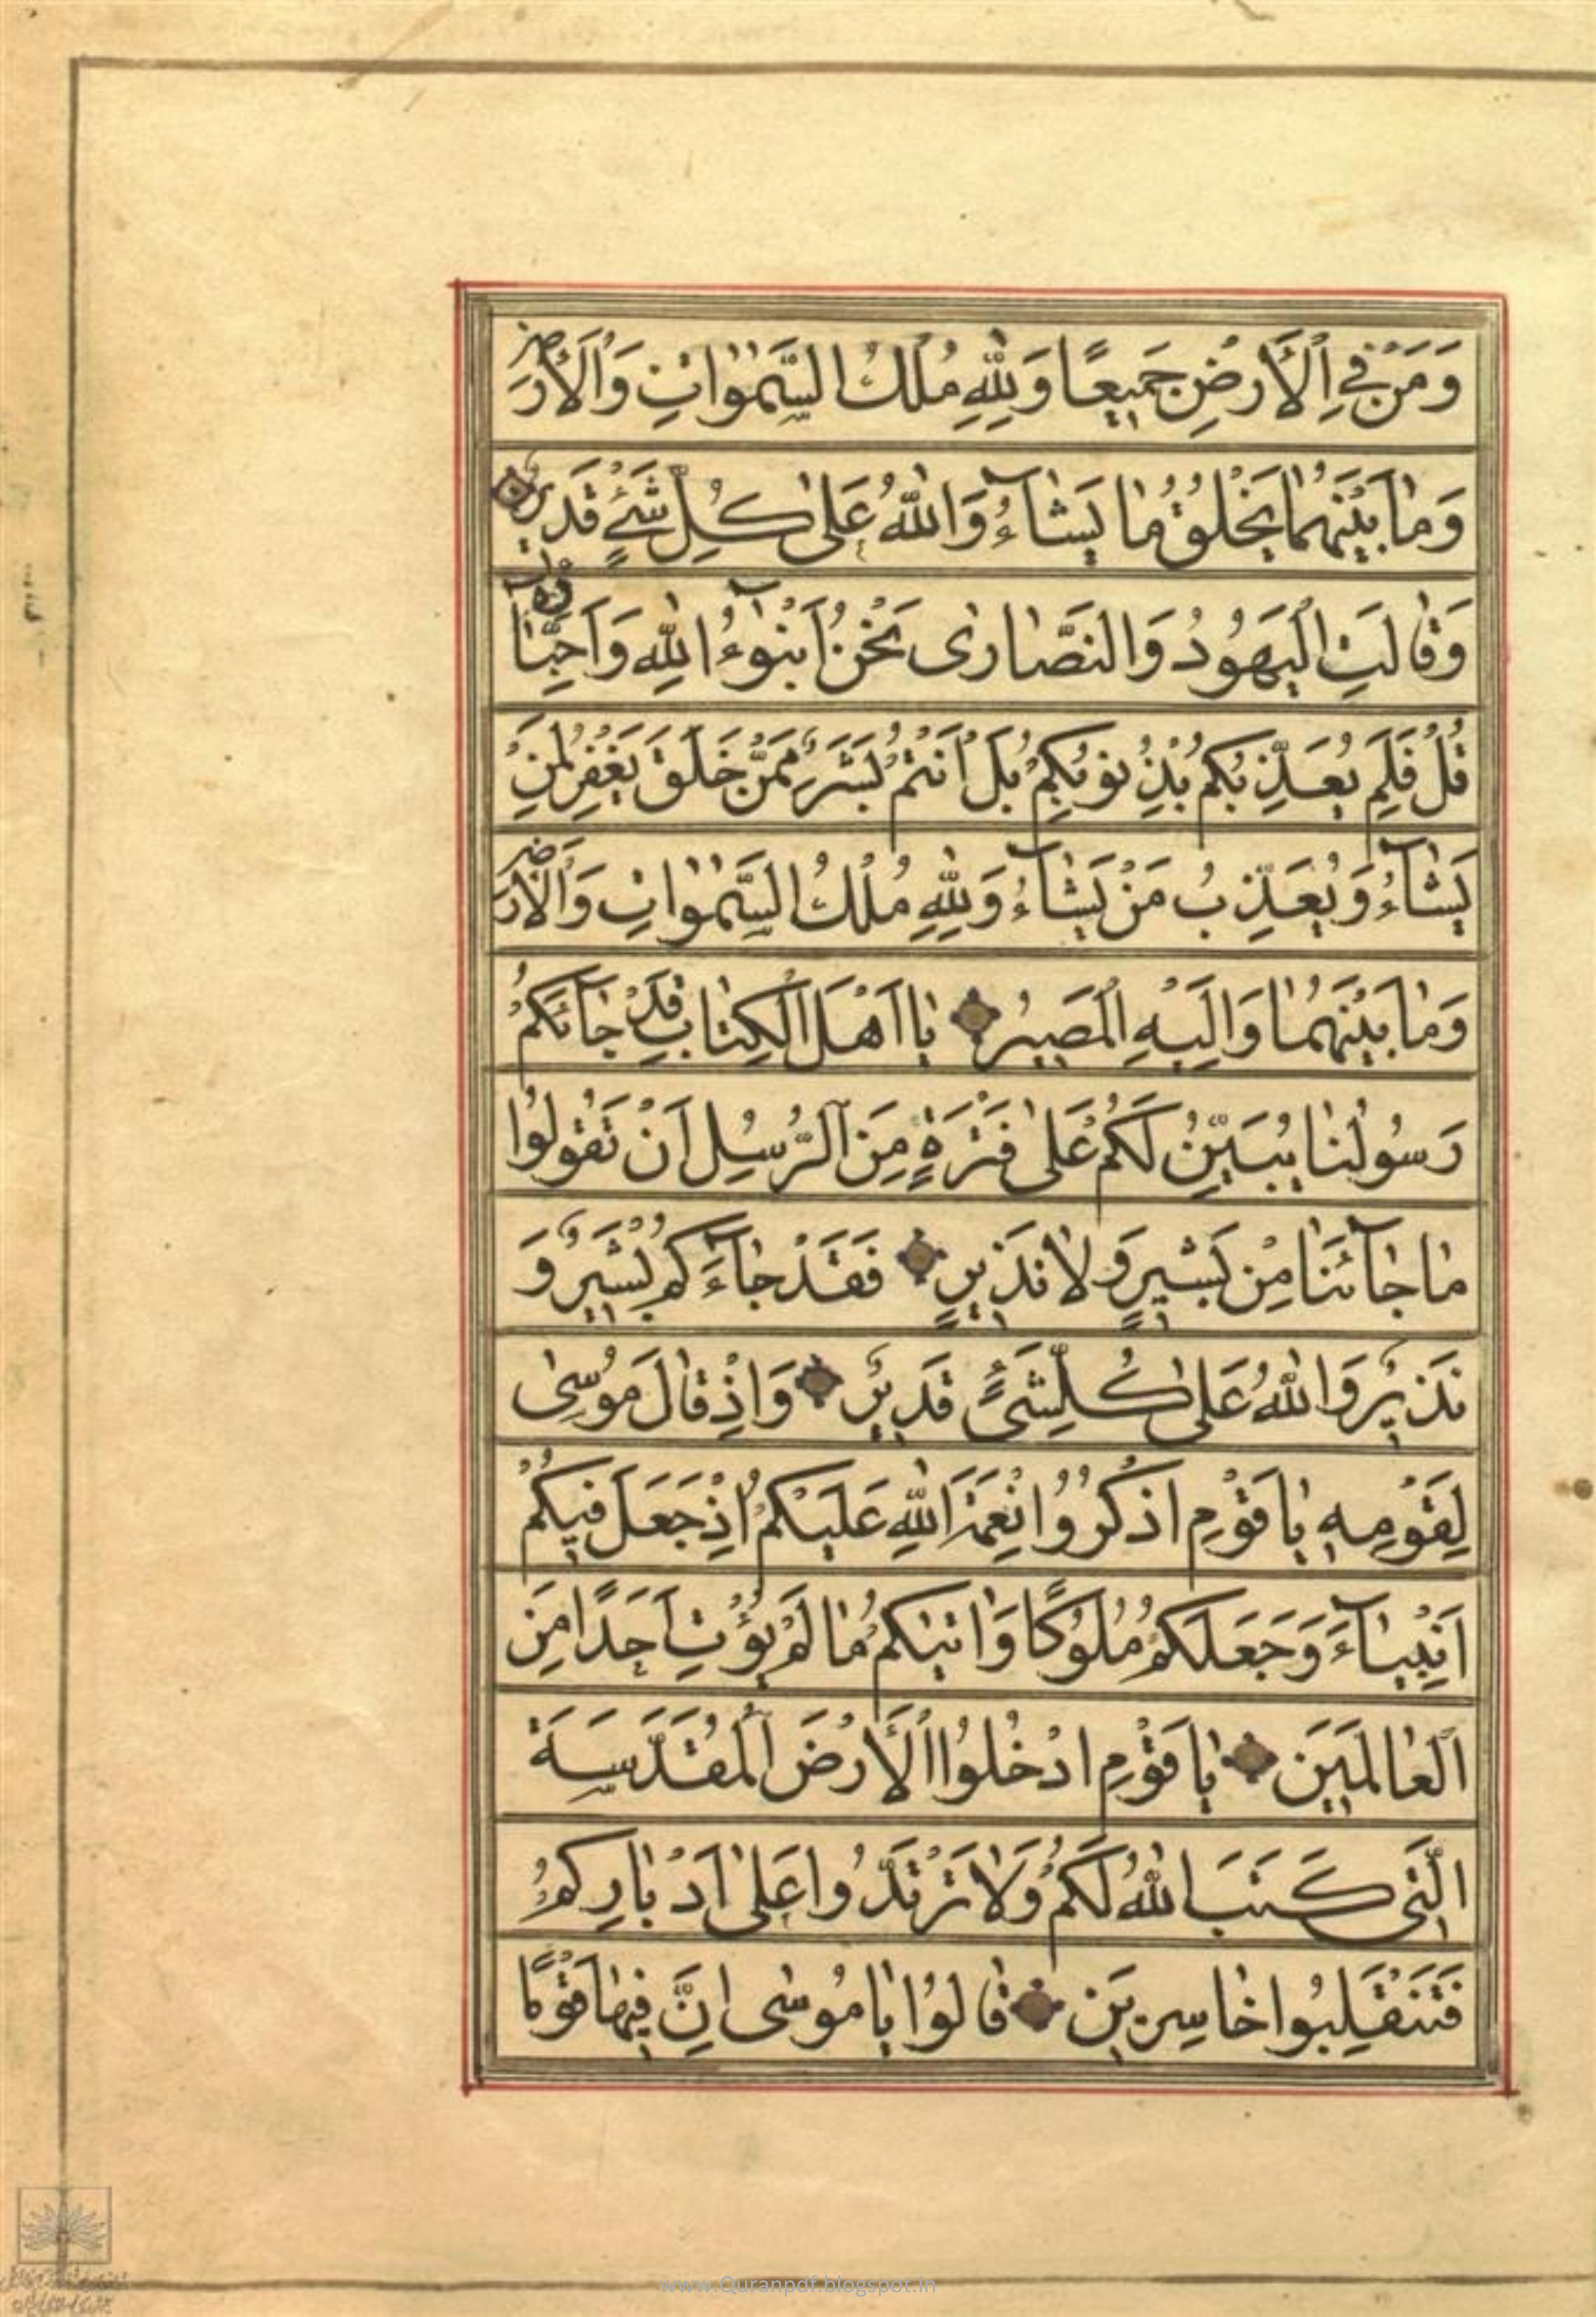 وَمَنْ فِي الْأَرْضِ جَمِيعًا وَلِلّٰهِ مُلْكُ السَّمٰوَاتِ وَالْأَرْضِ
وَمٰا بَيْنَهُمٰا يَخْلُقُ مٰا يَشٰآءُ وَاللّٰهُ عَلىٰ كُلِّ شَيْءٍ قَدِيرٌ
وَقٰالَتِ الْيَهُودُ وَالنَّصٰارىٰ نَحْنُ اَبْنٰؤُا اللّٰهِ وَاَحِبّٰآؤُهُ
قُلْ فَلِمَ يُعَذِّبُكُمْ بِذُنُوبِكُمْ بَلْ اَنْتُمْ بَشَرٌ مِمَّنْ خَلَقَ يَغْفِرُ لِمَنْ
يَشٰآءُ وَيُعَذِّبُ مَنْ يَشٰآءُ وَلِلّٰهِ مُلْكُ السَّمٰوٰاتِ وَالْأَرْضِ
وَمٰا بَيْنَهُمٰا وَاِلَيْهِ الْمَصِيرُ يٰا اَهْلَ الْكِتٰابِ قَدْ جٰآئَكُمْ
رَسُولُنٰا يُبَيِّنُ لَكُمْ عَلىٰ فَتْرَةٍ مِنَ الرُّسُلِ اَنْ تَقُولُوا
مٰا جٰآئَنٰا مِنْ بَشِيرٍ وَلٰا نَذِيرٍ فَقَدْ جٰآءَكُمْ بَشِيرٌ وَ
نَذِيرٌ وَاللّٰهُ عَلىٰ كُلِّ شَىْءٍ قَدِيرٌ وَاِذْ قٰالَ مُوسىٰ
لِقَوْمِهِ يٰا قَوْمِ اذْكُرُوا نِعْمَةَ اللّٰهِ عَلَيْكُمْ اِذْ جَعَلَ فِيكُمْ
اَنْبِيٰآءَ وَجَعَلَكُمْ مُلُوكًا وَاٰتٰيكُمْ مٰا لَمْ يُؤْتِ اَحَدًا مِنَ
الْعٰالَمِينَ يٰا قَوْمِ ادْخُلُوا الْأَرْضَ الْمُقَدَّسَةَ
الَّتِى كَتَبَ اللّٰهُ لَكُمْ وَلٰا تَرْتَدُّوا عَلىٰ اَدْبٰارِكُمْ
فَتَنْقَلِبُوا خٰاسِرِينَ قٰالُوا يٰا مُوسٰى اِنَّ فِيهٰا قَوْمًا
www.Quranpdf.blogspot.in